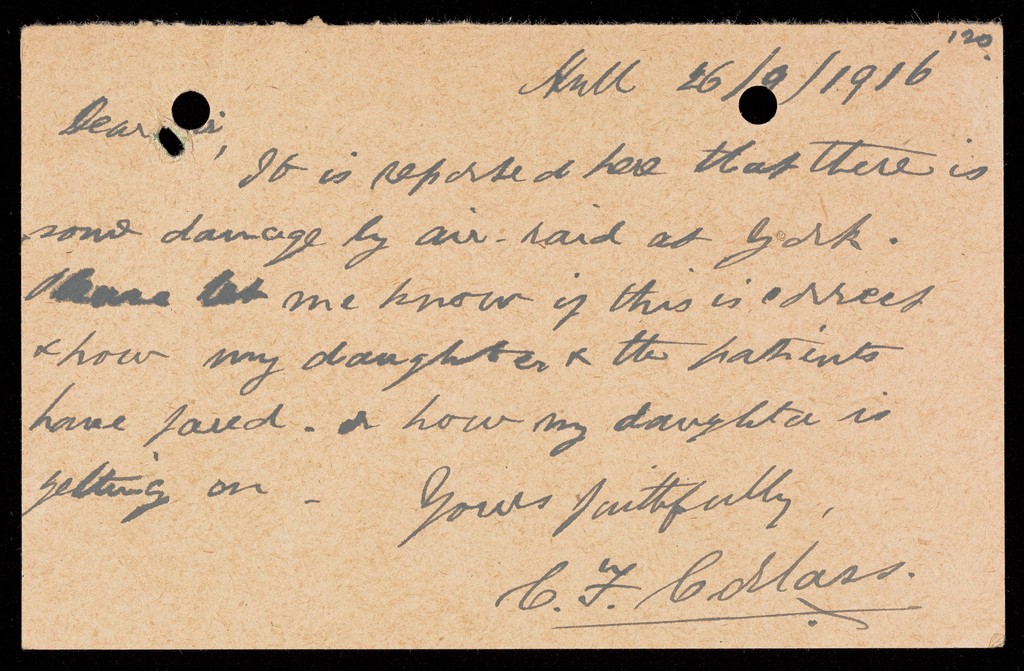 120.
Hull 26/9/1916
Dear Sir,
It is reported here that there is
some damage by air-raid at York.
Please let me know if this is correct
& how my daughter & the patients
have fared. & how my daughter is
getting on -
Yours faithfully,
C. F.